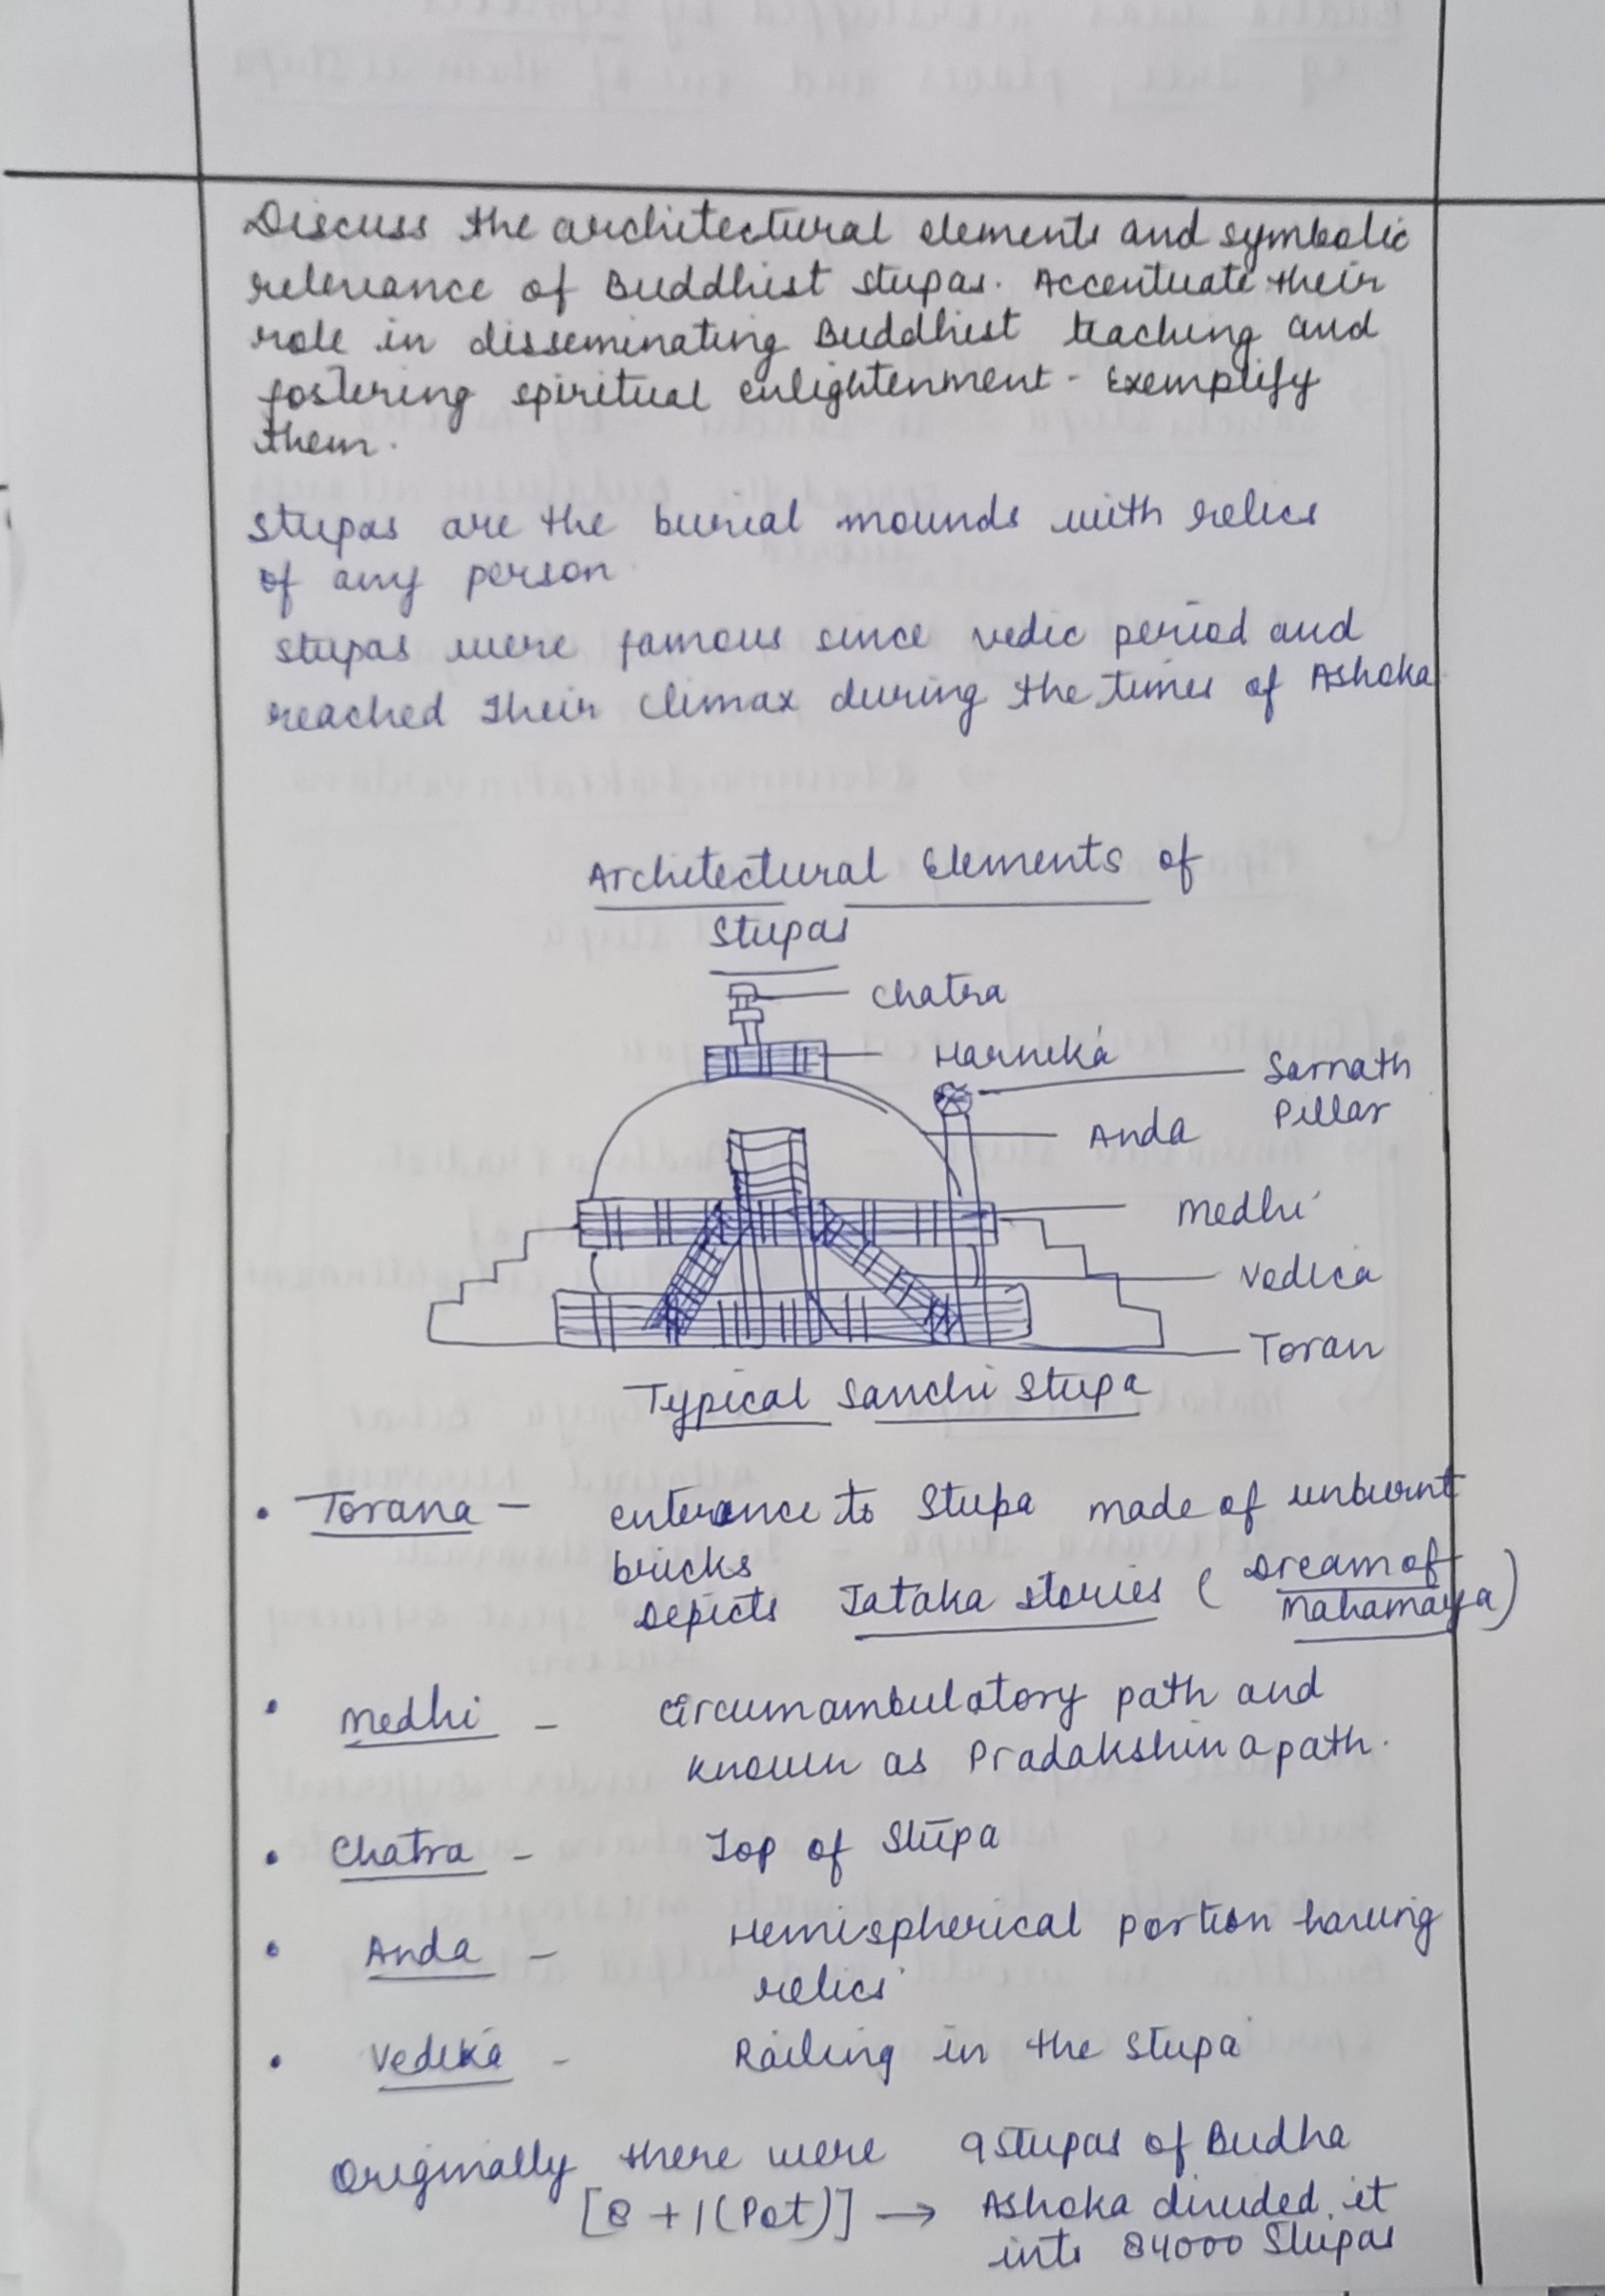 Discuss the architectural elements and symbolic
relevance of Buddhist stupas. Accentuate their
role in disseminating Buddhist teaching and
fostering spiritual enlightenment - Exemplify
them.
Stupas are the burial mounds with relics
of any person.
Stupas were famous since vedic period and
reached their climax during the times of Ashoka
Architectural Elements of
Stupas
Chatra
Harmika
Sarnath
Pillar
Anda
Medhi
Vedica
Toran
Typical Sanchi Stupa
• Torana - enterance to Stupa made of unburnt
bricks
Depicts Jataka stories (Dream of
Mahamaya)
• Medhi - circumambulatory path and
known as Pradakshinapath.
• Chatra - Top of Stupa
• Anda - Hemispherical portion having
relics
• Vedika - Railing in the Stupa
Originally there were 9 stupas of Budha
[8 + 1 (Pot)] → Ashoka divided it
into 84000 Stupas